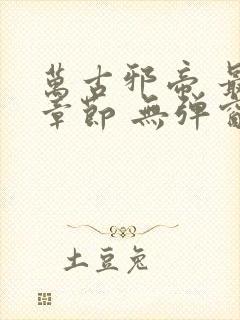 萬古邪帝 最
章節 無弹窗
土豆兔